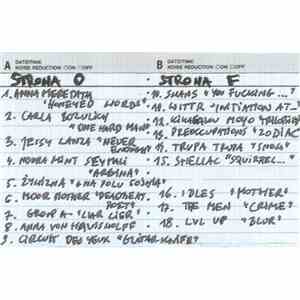 A DATE/TIME
NOISE REDUCTION ○ON ○OFF
B DATE/TIME
NOISE REDUCTION ○ON ○OFF
STRONA O
1. ANNA MEREDITH
"HONEYED WORDS"
2. CARLA BOZULICH
"ONE HARD MAN"
3. JESSY LANZA "NEVER
ENOUGH"
4. NOURA MINT SEYMALI
"ARBINA"
5. "NA POLU
6. MOOR MOTHER "DEADBEAT
POET"
7. GROUP A - "LIAR LIER"
8. ANNA VON HAUSSWOLFF
9. CIRCUIT DES YEUX "
STRONA F
10. SWANS "YOU FUCKING ..."
11. WITTR "INITIATION AT..."
12. KIKAGAKU MOYO
13. PREOCCUPATIONS "ZODIAC
14. TRUPA TRUPA
15. SHELLAC "SQUIRREL..."
16. IDLES "MOTHER"
17. THE MEN "CRIME"
18. LVL UP "BLUR"